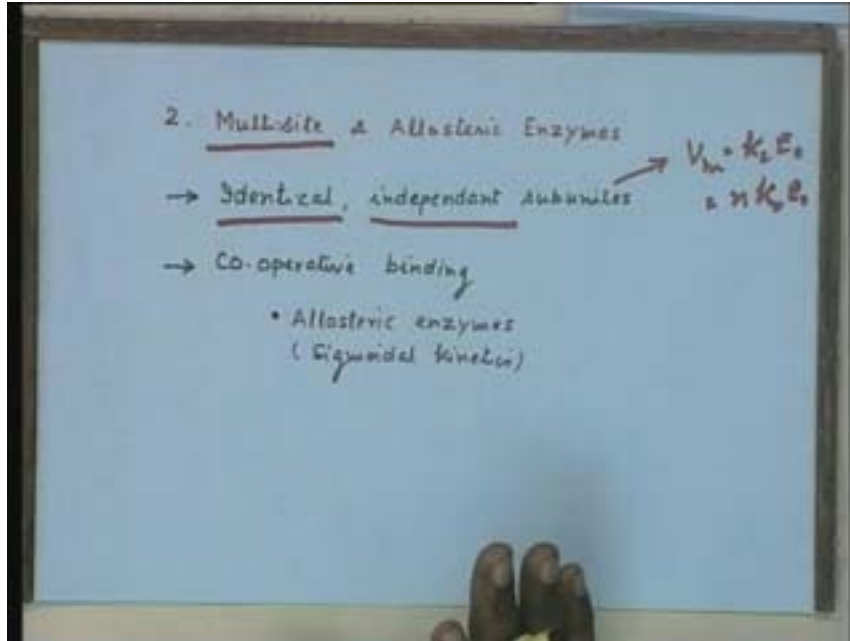 2. Multisite & Allosteric Enzymes
→ Identical, independant subunites → Vm = k2 E0
= n k2 e0
→ Co-operative binding
• Allosteric enzymes
(Sigmoidal kinetics)